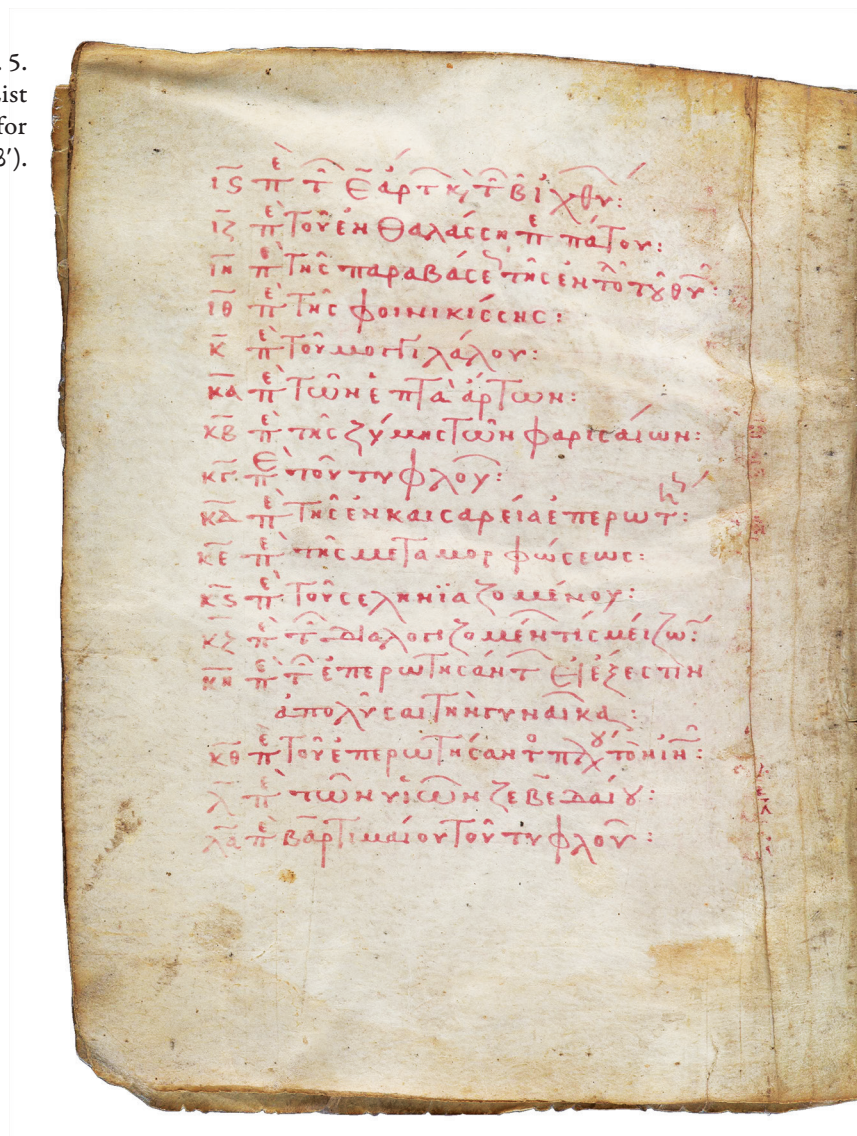 . 5.
ist
for
β′).
ιϛ πὲ τ̑ ε̄ ἄρτ κ, τ̑ β̄ ἰχθύ:
ιζ πὲ τοῦ ἐν θαλάσσῃ πὲ πάτου:
ιη πὲ τῆς παραβάσε τῆς ἐντο
ιθ πὲ τῆς φοινικίσσης:
κ πὲ τοῦ μογγιλάλου:
κα πὲ τῶν ἑπτὰ ἄρτων:
κβ πὲ της ζύμης τῶν φαρισαίων:
κγ πὲ τοῦ τυφλοῦ:
κδ πὲ τῆς ἐν καισαρεία ἐπερωτ:
κε πὲ της μεταμορφώσεως:
κϛ πὲ τοῦ σεληνϊαζομένου:
κζ πὲ τ̑ διαλογιζομέν τίς μείζω:
κη πὲ τ̑ ἐπερωτησάντ εἰ ἔξεστιν
ἀπολῦσαι τὴν γυναῖκα:
κθ πὲ τοῦ ἐπερωτήσαντο πλου τὸν ιν:
λ πὲ τῶν υἱῶν ζεβεδαίου:
λα πὲ βαρτιμαίου τοῦ τυφλοῦ: